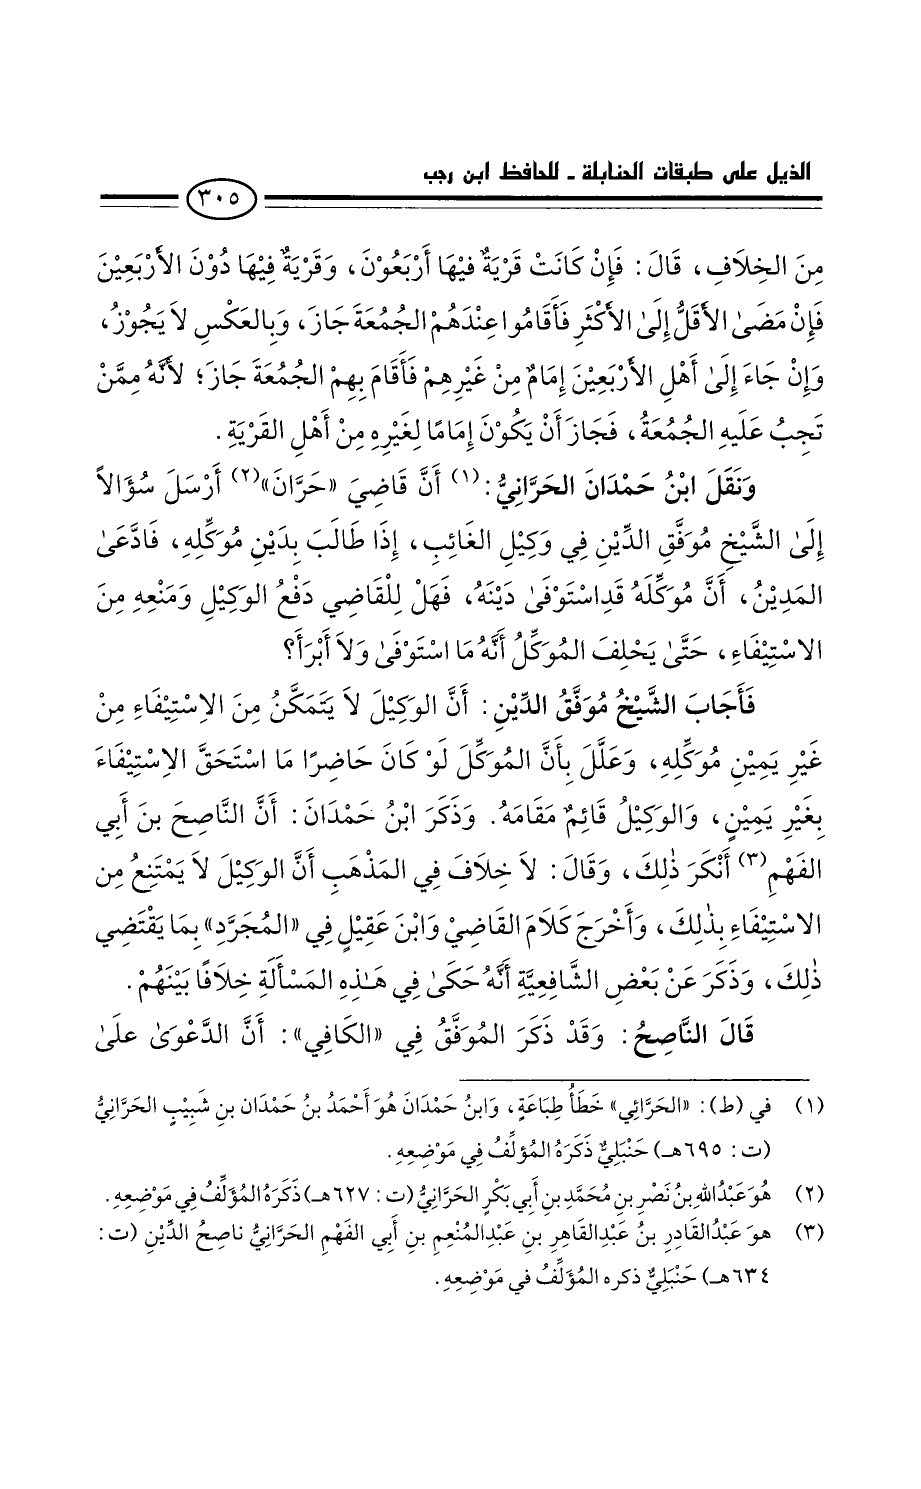 الذيل على طبقات الحنابلة ـ للحافظ ابن رجب
٣٠٥
مِنَ الخِلَافِ، قَالَ: فَإِنْ كَانَتْ قَرْيَةٌ فِيْهَا أَرْبَعُوْنَ، وَقَرْيَةٌ فِيْهَا دُوْنَ الأَرْبَعِيْنَ
فَإِنْ مَضَىٰ الأَقَلُّ إِلَىٰ الأَكْثَرِ فَأَقَامُوا عِنْدَهُمْ الجُمُعَةَ جَازَ، وَبِالعَكْسِ لاَ يَجُوْزُ،
وَإِنْ جَاءَ إِلَىٰ أَهْلِ الأَرْبَعِيْنَ إِمَامٌ مِنْ غَيْرِهِمْ فَأَقَامَ بِهِمْ الجُمُعَةَ جَازَ؛ لأَنَّهُ مِمَّنْ
تَجِبُ عَلَيهِ الجُمُعَةُ، فَجَازَ أَنْ يَكُوْنَ إِمَامًا لِغَيْرِهِ مِنْ أَهْلِ القَرْيَةِ.
وَنَقَلَ ابْنُ حَمْدَانَ الحَرَّانِيُّ:(١) أَنَّ قَاضِيَ «حَرَّانَ»(٢) أَرْسَلَ سُؤَالاً
إِلَىٰ الشَّيْخِ مُوَفَّقِ الدِّيْنِ فِي وَكِيْلِ الغَائِبِ، إِذَا طَالَبَ بِدَيْنِ مُوَكِّلِهِ، فَادَّعَىٰ
المَدِيْنُ، أَنَّ مُوَكِّلَهُ قَدِاسْتَوْفَىٰ دَيْنَهُ، فَهَلْ لِلْقَاضِي دَفْعُ الوَكِيْلِ وَمَنْعِهِ مِنَ
الاسْتِيْفَاءِ، حَتَّىٰ يَحْلِفَ المُوَكِّلُ أَنَّهُ مَا اسْتَوْفَىٰ وَلاَ أَبْرَأَ؟
فَأَجَابَ الشَّيْخُ مُوَفَّقُ الدِّيْنِ: أَنَّ الوَكِيْلَ لاَ يَتَمَكَّنُ مِنَ الاِسْتِيْفَاءِ مِنْ
غَيْرِ يَمِيْنِ مُوَكِّلِهِ، وَعَلَّلَ بِأَنَّ المُوَكِّلَ لَوْ كَانَ حَاضِرًا مَا اسْتَحَقَّ الاِسْتِيْفَاءَ
بِغَيْرِ يَمِيْنٍ، وَالوَكِيْلُ قَائِمٌ مَقَامَهُ. وَذَكَرَ ابْنُ حَمْدَانَ: أَنَّ النَّاصِحَ بنَ أَبِي
الفَهْمِ(٣) أَنْكَرَ ذٰلِكَ، وَقَالَ: لاَ خِلَافَ فِي المَذْهَبِ أَنَّ الوَكِيْلَ لاَ يَمْتَنِعُ مِن
الاسْتِيْفَاءِ بِذٰلِكَ، وَأَخْرَجَ كَلَامَ القَاضِيْ وَابْنَ عَقِيْلٍ فِي «المُجَرَّدِ» بِمَا يَقْتَضِي
ذٰلِكَ، وَذَكَرَ عَنْ بَعْضِ الشَّافِعِيَّةِ أَنَّهُ حَكَىٰ فِي هَـٰذِهِ المَسأَلَةِ خِلَافًا بَيْنَهُمْ.
قَالَ النَّاصِحُ: وَقَدْ ذَكَرَ المُوَفَّقُ فِي «الكَافِي»: أَنَّ الدَّعْوَىٰ عَلَىٰ
(١) في (ط): «الحَرَّائِي» خَطَأُ طِبَاعَةٍ، وَابنُ حَمْدَانَ هُوَ أَحْمَدُ بنُ حَمْدَان بنِ شَبِيْبٍ الحَرَّانِيُّ
(ت: ٦٩٥هـ) حَنْبَلِيٌّ ذَكَرَهُ المُؤَلِّفُ فِي مَوْضِعِهِ.
(٢) هُوَ عَبْدُاللهِ بنُ نَصْرِ بنِ مُحَمَّدِ بنِ أَبِي بَكْرٍ الحَرَّانِيُّ (ت: ٦٢٧هـ) ذَكَرَهُ المُؤَلِّفُ فِي مَوْضِعِهِ.
(٣) هوَ عَبْدُالقَادِرِ بنُ عَبْدِالقَاهِرِ بنِ عَبْدِالمُنْعِمِ بنِ أَبِي الفَهْمِ الحَرَّانِيُّ ناصِحُ الدِّيْنِ (ت:
٦٣٤هـ) حَنْبَلِيٌّ ذكره المُؤَلِّفُ في مَوْضِعِهِ.